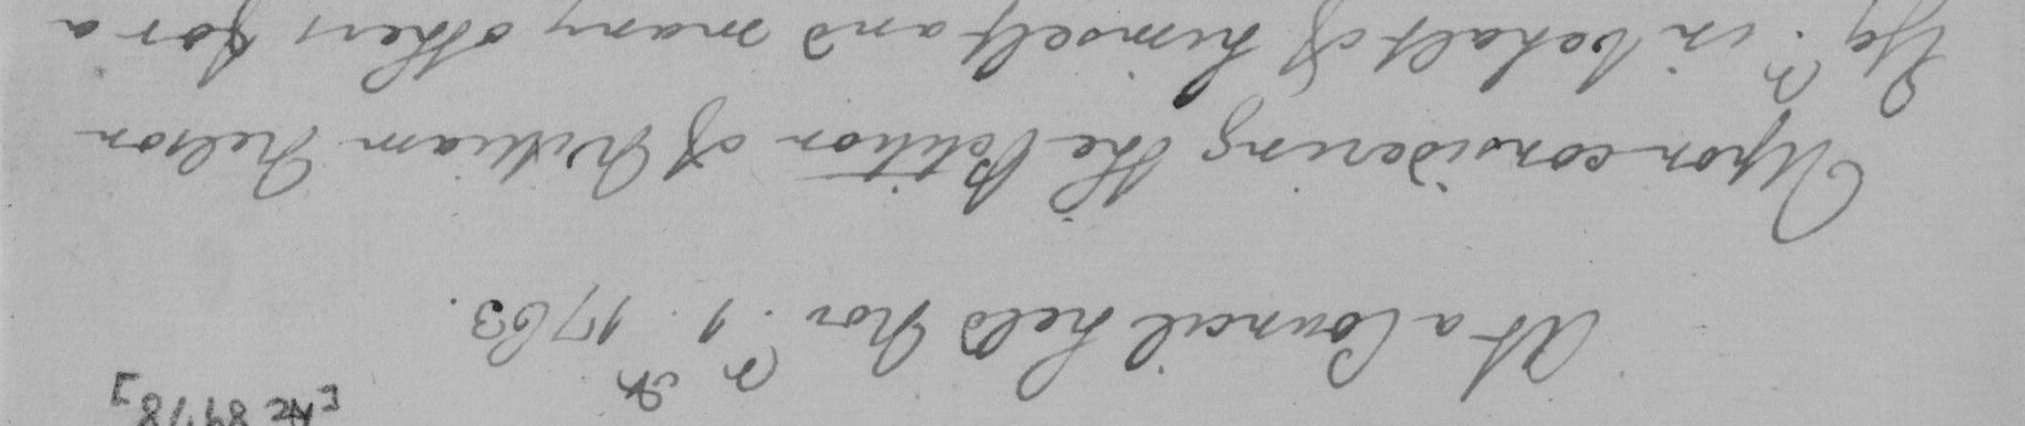 [Ac 8478]
At a Council held Nov.r 1.st 1763.
Upon considering the Petition of William Nelson
Esq.r in behalf of himself and many others for a